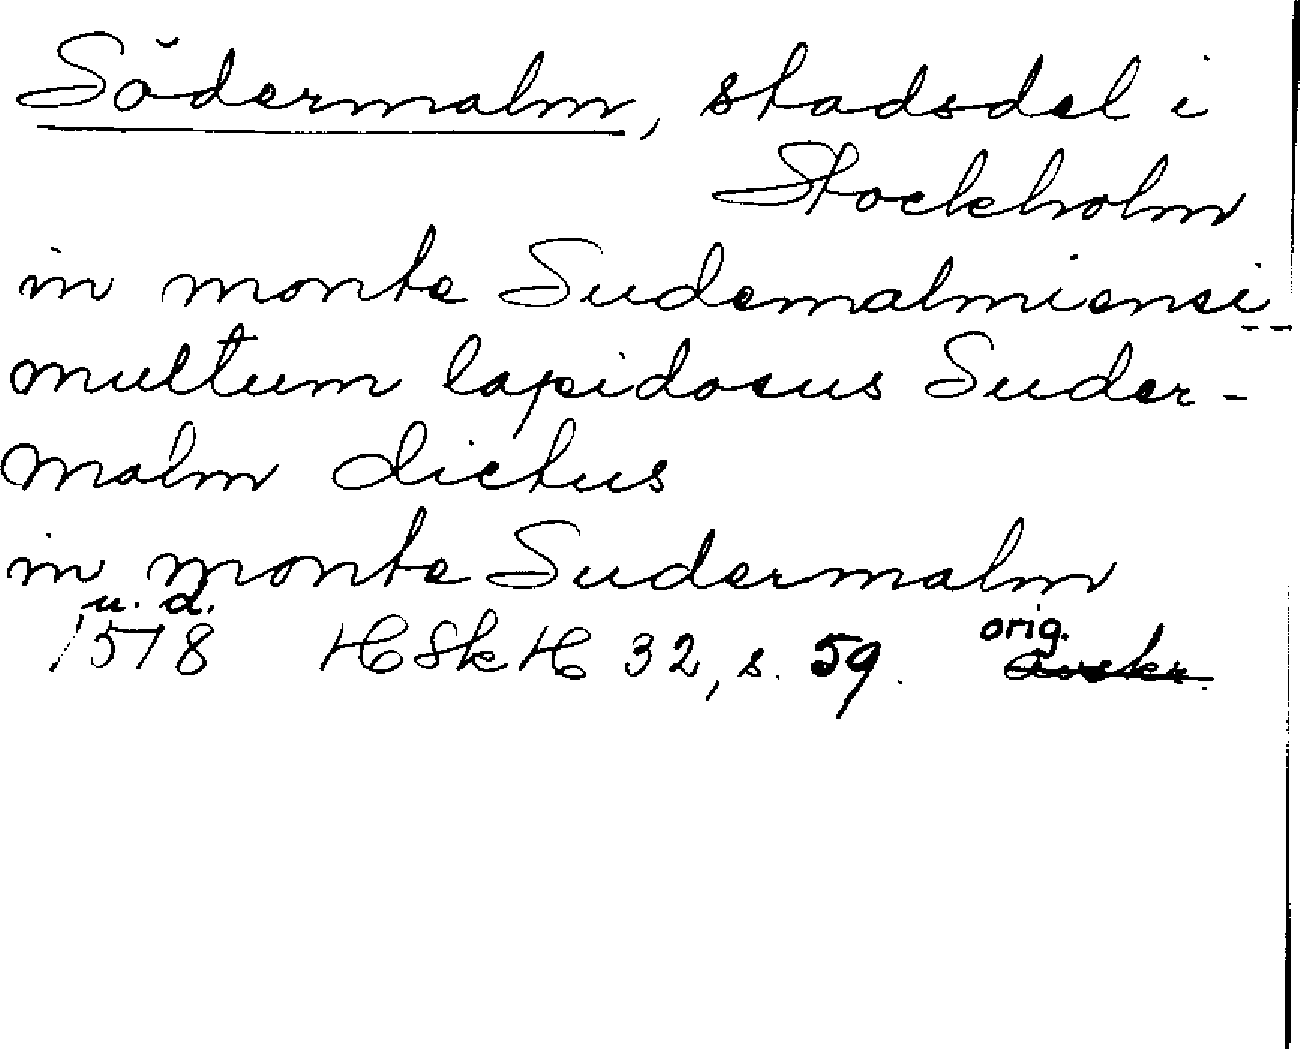 Södermalm, stadsdel i
Stockholm
in monte Sudemalmiensi
multum lapidosus Suder-
malm dictus
in monte Sudermalm
u. d.
1518 HSkH 32, s. 59. orig.